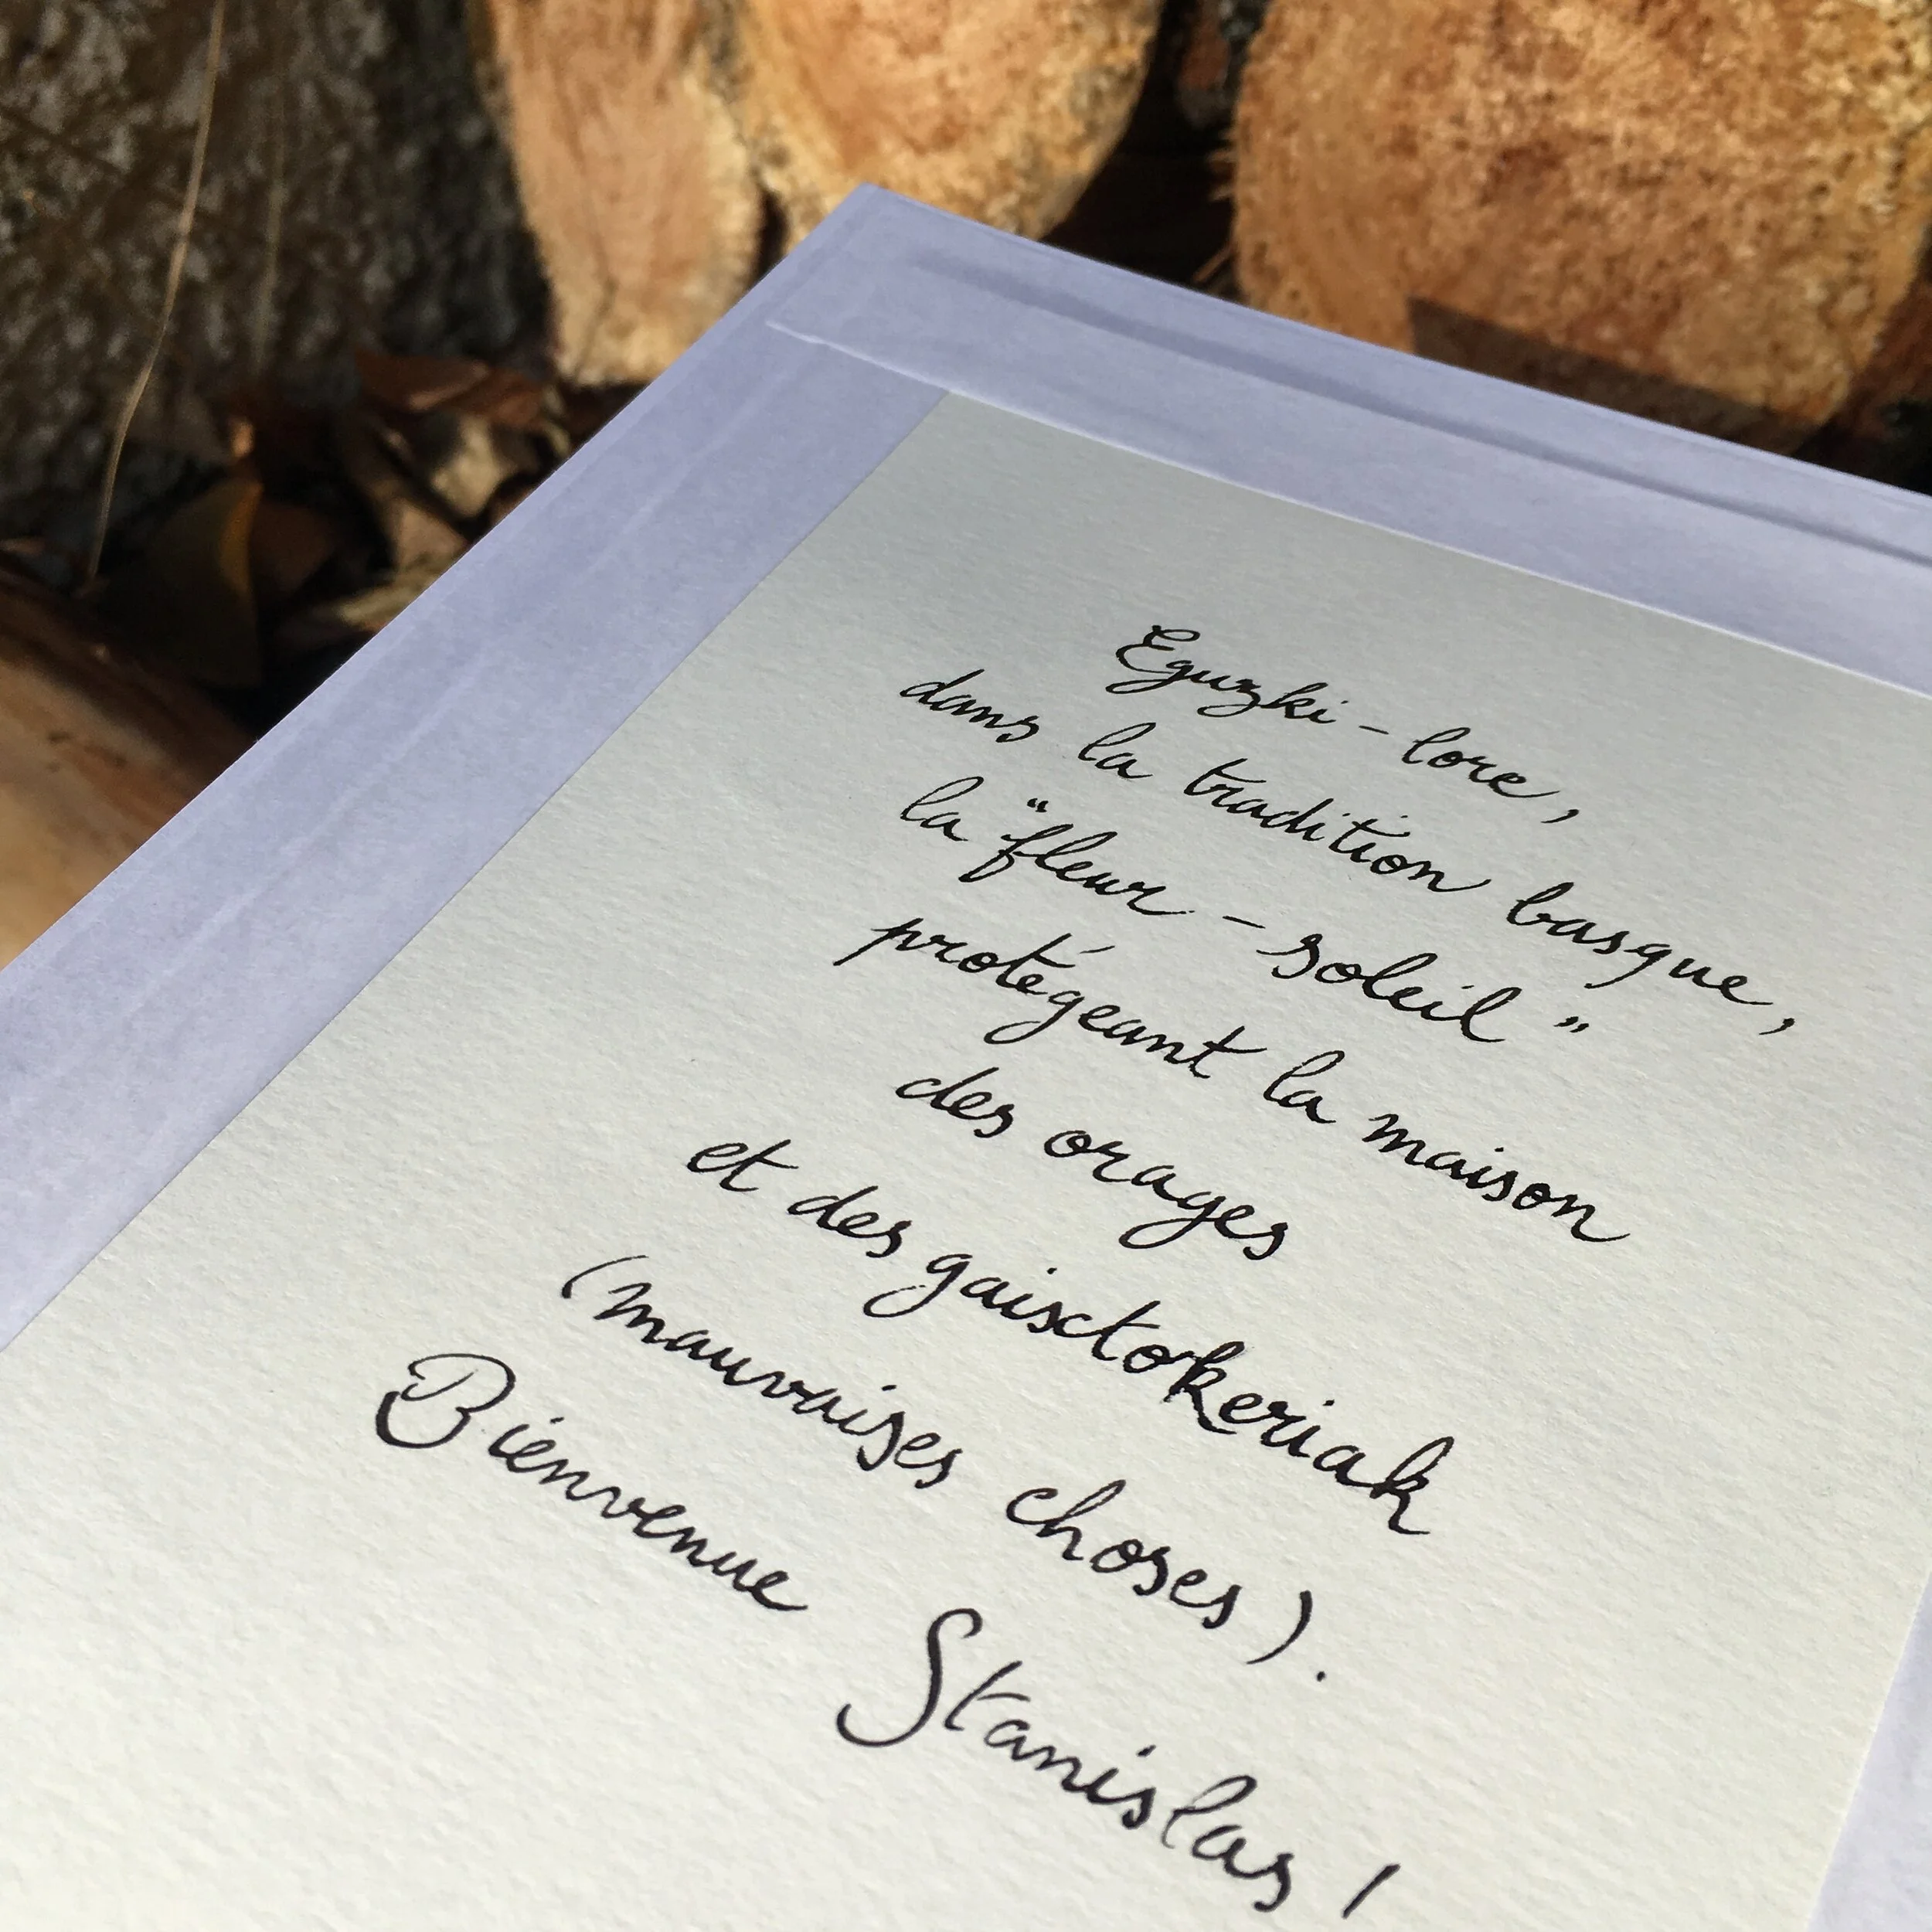 Eguzki-lore,
dans la tradition basque,
la "fleur-soleil"
protégeant la maison
des orages
et des gaixtokeriak
(mauvaises choses).
Bienvenue Stanislas !